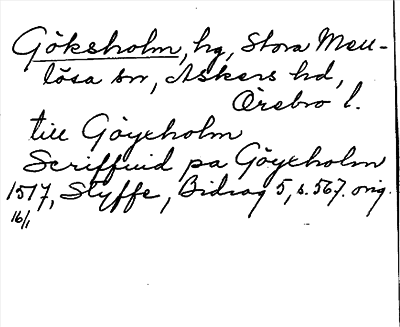 Göksholm, hg, Stora Mell-
lösa sn, Askers hd,
Örebro l.
till Göyeholm
Scriffuid pa Göyeholm
1517, Styffe, Bidrag 5, s. 567. orig.
16/1